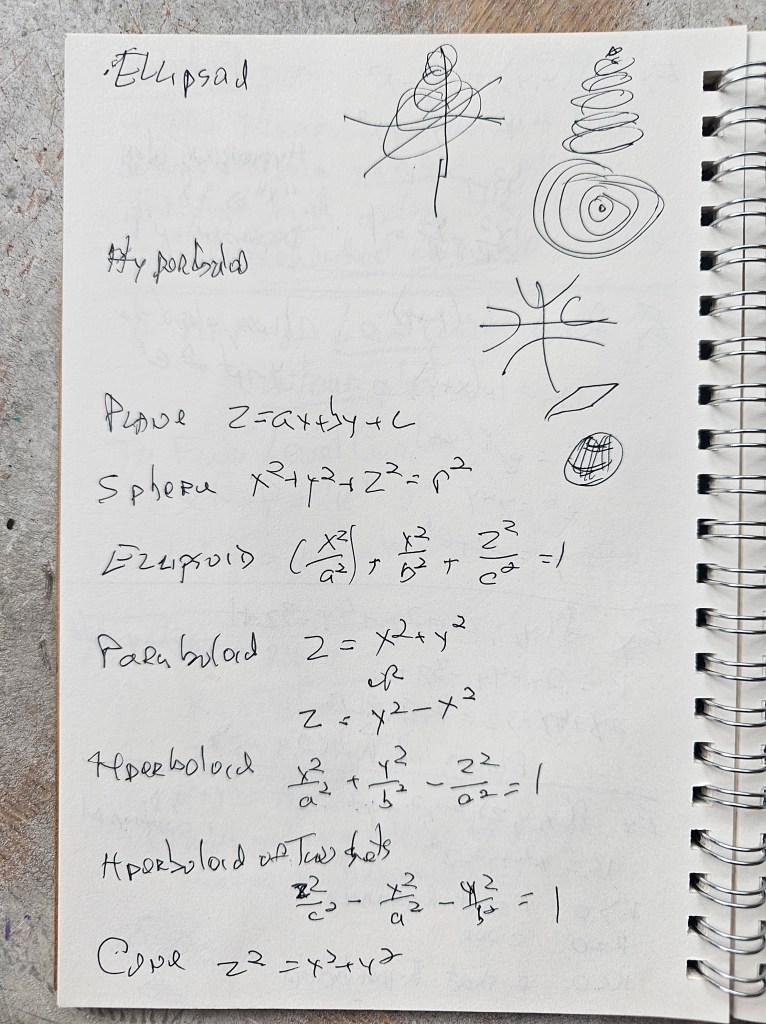 Ellipsad
Hyperboloid
Plane z=ax+by+c
Sphere x²+y²+z²=r²
Ellipsoid (x²/a²)+x²/b²+z²/c²=1
Paraboloid z=x²+y²
or
z=y²-x²
Hperboloid x²/a²+y²/b²-z²/a²=1
Hperboloid of Two shets
z²/c²-x²/a²-y²/b²=1
Cone z²=x²+y²